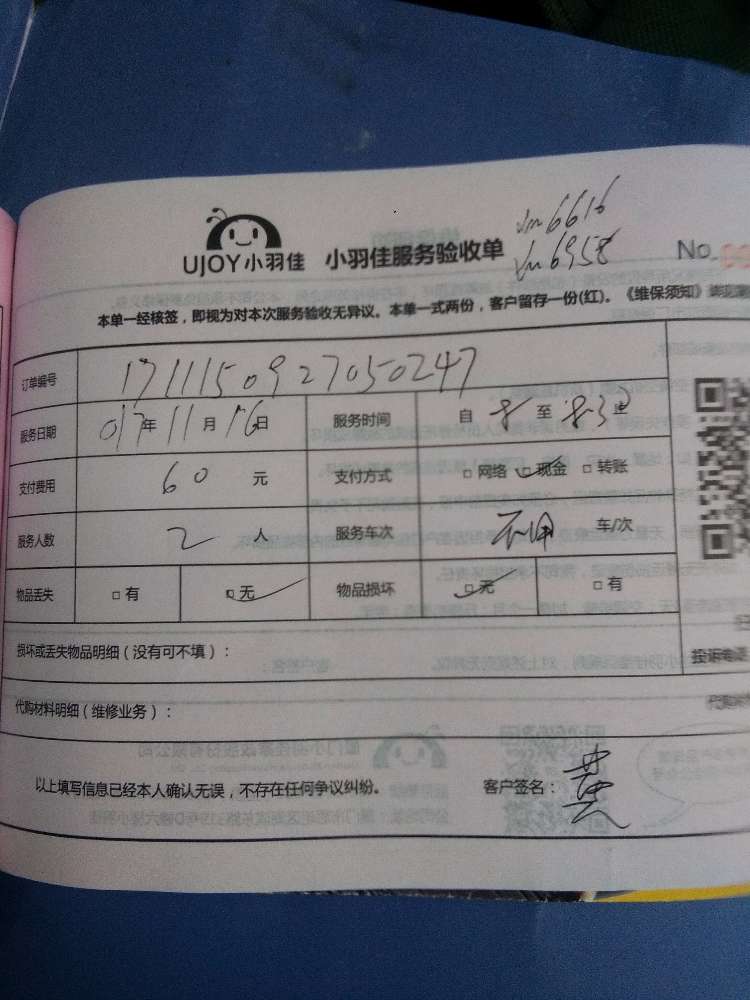 vm6616
vm6958
UJOY小羽佳 小羽佳服务验收单 No.
本单一经核签，即视为对本次服务验收无异议。本单一式两份，客户留存一份(红)。《维保须知》
订单编号 1711150927050247
服务日期 017年11月16日 服务时间 自 8 至 8:30
支付费用 60 元 支付方式 □ 网络 □ 现金 □ 转账
服务人数 2 人 服务车次 不用 车/次
物品丢失 □ 有 □ 无 物品损坏 □ 无 □ 有
损坏或丢失物品明细（没有可不填）：
投诉电话
代购材料明细（维修业务）：
以上填写信息已经本人确认无误，不存在任何争议纠纷。 客户签名：